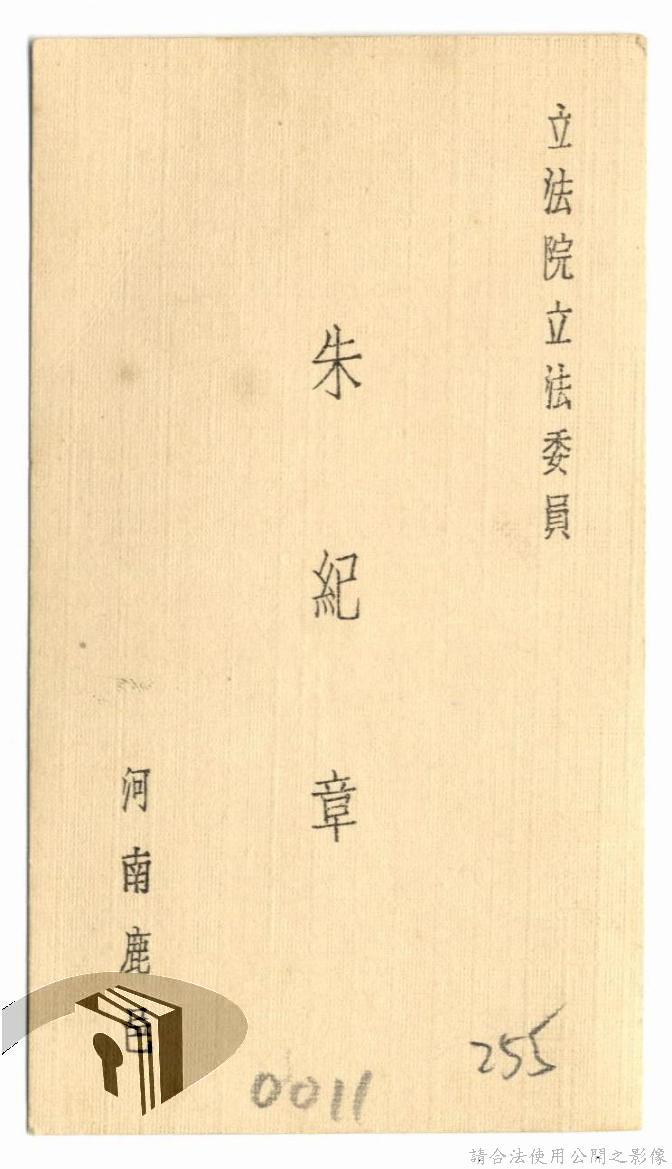 立法院立法委員
朱紀章
河南鹿邑
255
0011
請合法使用公開之影像